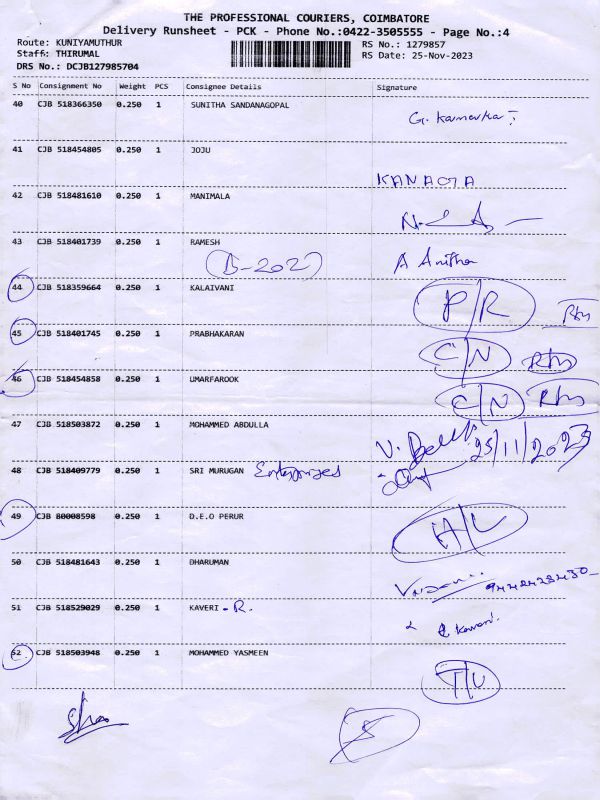 THE PROFESSIONAL COURIERS, COIMBATORE
Delivery Runsheet - PCK - Phone No.:0422-3505555 - Page No.:4
Route: KUNIYAMUTHUR RS No.: 1279857
Staff: THIRUMAL RS Date: 25-Nov-2023
DRS No.: DCJB127985704
S No Consignment No Weight PCS Consignee Details Signature
40 CJB 518366350 0.250 1 SUNITHA SANDANAGOPAL
41 CJB 518454805 0.250 1 JOJU
42 CJB 518481610 0.250 1 MANIMALA
43 CJB 518401739 0.250 1 RAMESH
B-202 A Anitha
44 CJB 518359664 0.250 1 KALAIVANI P/R
45 CJB 518401745 0.250 1 PRABHAKARAN C/N
46 CJB 518454858 0.250 1 UMARFAROOK C/N
47 CJB 518503872 0.250 1 MOHAMMED ABDULLA 25/11/2023
48 CJB 518409779 0.250 1 SRI MURUGAN Enterprises
49 CJB 80008598 0.250 1 D.E.O PERUR
50 CJB 518481643 0.250 1 DHARUMAN
51 CJB 518529029 0.250 1 KAVERI - R.
52 CJB 518503948 0.250 1 MOHAMMED YASMEEN